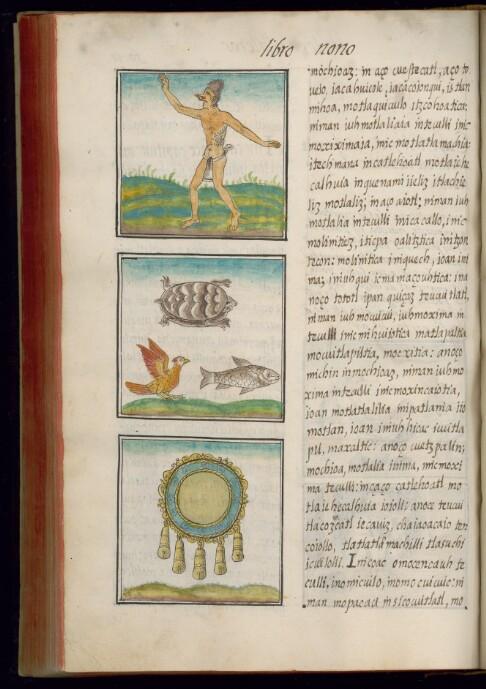 libro nono
mochioaz: in aço cuextecatl, aço to
ueio, iacahuicole, iacacoionqui, ixtlan
mihoa, motlaquicuilo itzcohoaticac
niman iuh motlaliaia in teculli inic
moxiximaia, inic motlatlamachia:
itech mana in catlehoatl motlaiehe
calhuia in quenami iieliz itlachie
liz motlaliz; in aço aiotl: niman iuh
motlalia in teculli inicacallo, inic
molinitiez, iticpa oalitztica in itzon
tecon: molinitica in iquech, ioan ini
ma; in iuhqui ic mamaçouhtica: ina
noço tototl ipan quiçaz teucuitlatl,
niman iuh mocuicui, iuh moxima in
teculli inic mihuiiotica matlapaltia
mocuitlapiltia, moexitia: anoço
michin in mochioaz, niman iuh mo
xima in teculli inic moxincaiotia,
ioan motlatlalilia in ipatlania iio
motlan, ioan in iuh hicac icuitla
pil, maxaltic: anoço cuetzpalin;
mochioa, motlalia inima, inic moxi
ma teculli: in çaço catlehoatl mo
tlaiehecalhuia ioiolli: anoce teucui
tlacozcatl iecauiz, chaiaoacaio ten
coiollo, tlatlatlamachilli tlaxuchi
icuilolli. In icoac omocencauh te
culli, in omicuilo, in omocuicuic: ni
man mopaoaci in xicocuitlatl, mo